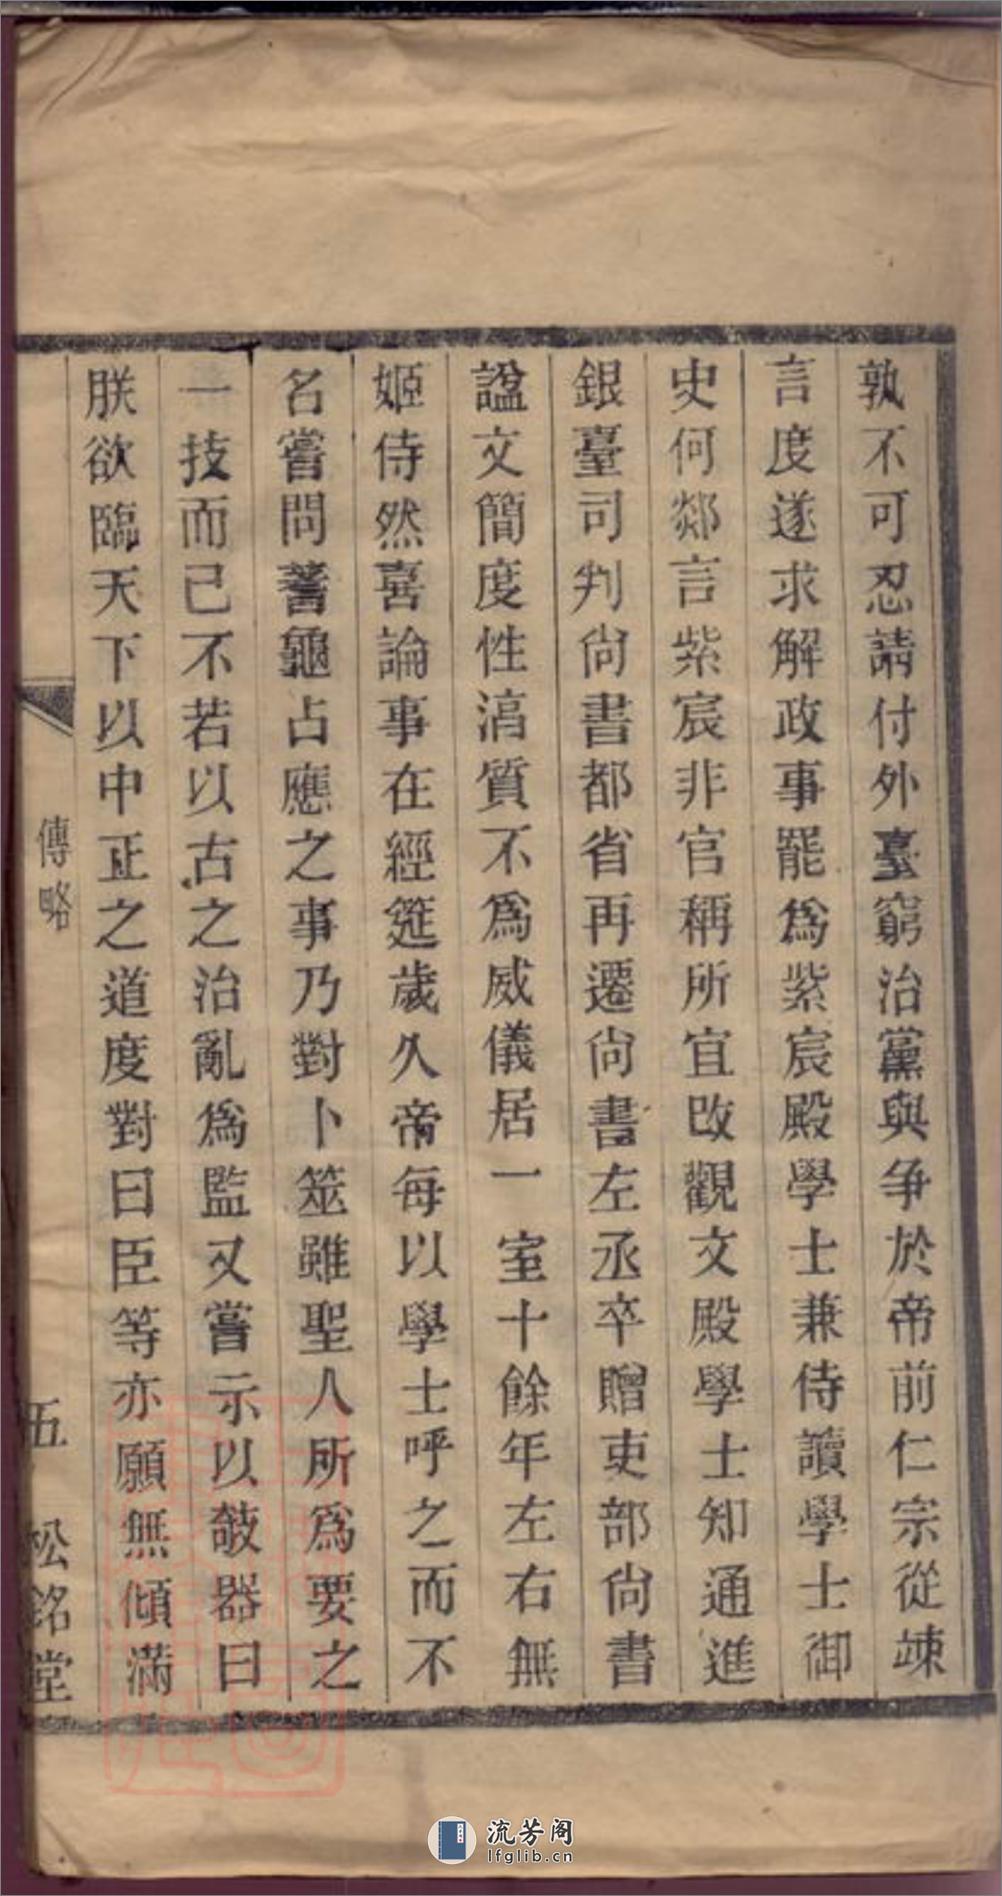 孰不可忍請付外臺窮治黨與爭於帝前仁宗從竦
言度遂求解政事罷爲紫宸殿學士兼侍讀學士御
史何郯言紫宸非官稱所宜改觀文殿學士知通進
銀臺司判尙書都省再遷尙書左丞卒贈吏部尙書
諡文簡度性淳質不爲威儀居一室十餘年左右無
姬侍然喜論事在經筵歲久帝每以學士呼之而不
名嘗問蓍龜占應之事乃對卜筮雖聖人所爲要之
一技而已不若以古之治亂爲監又嘗示以欹器曰
朕欲臨天下以中正之道度對曰臣等亦願無傾滿
傳略
五
松銘堂
流芳阁
lfglib.cn